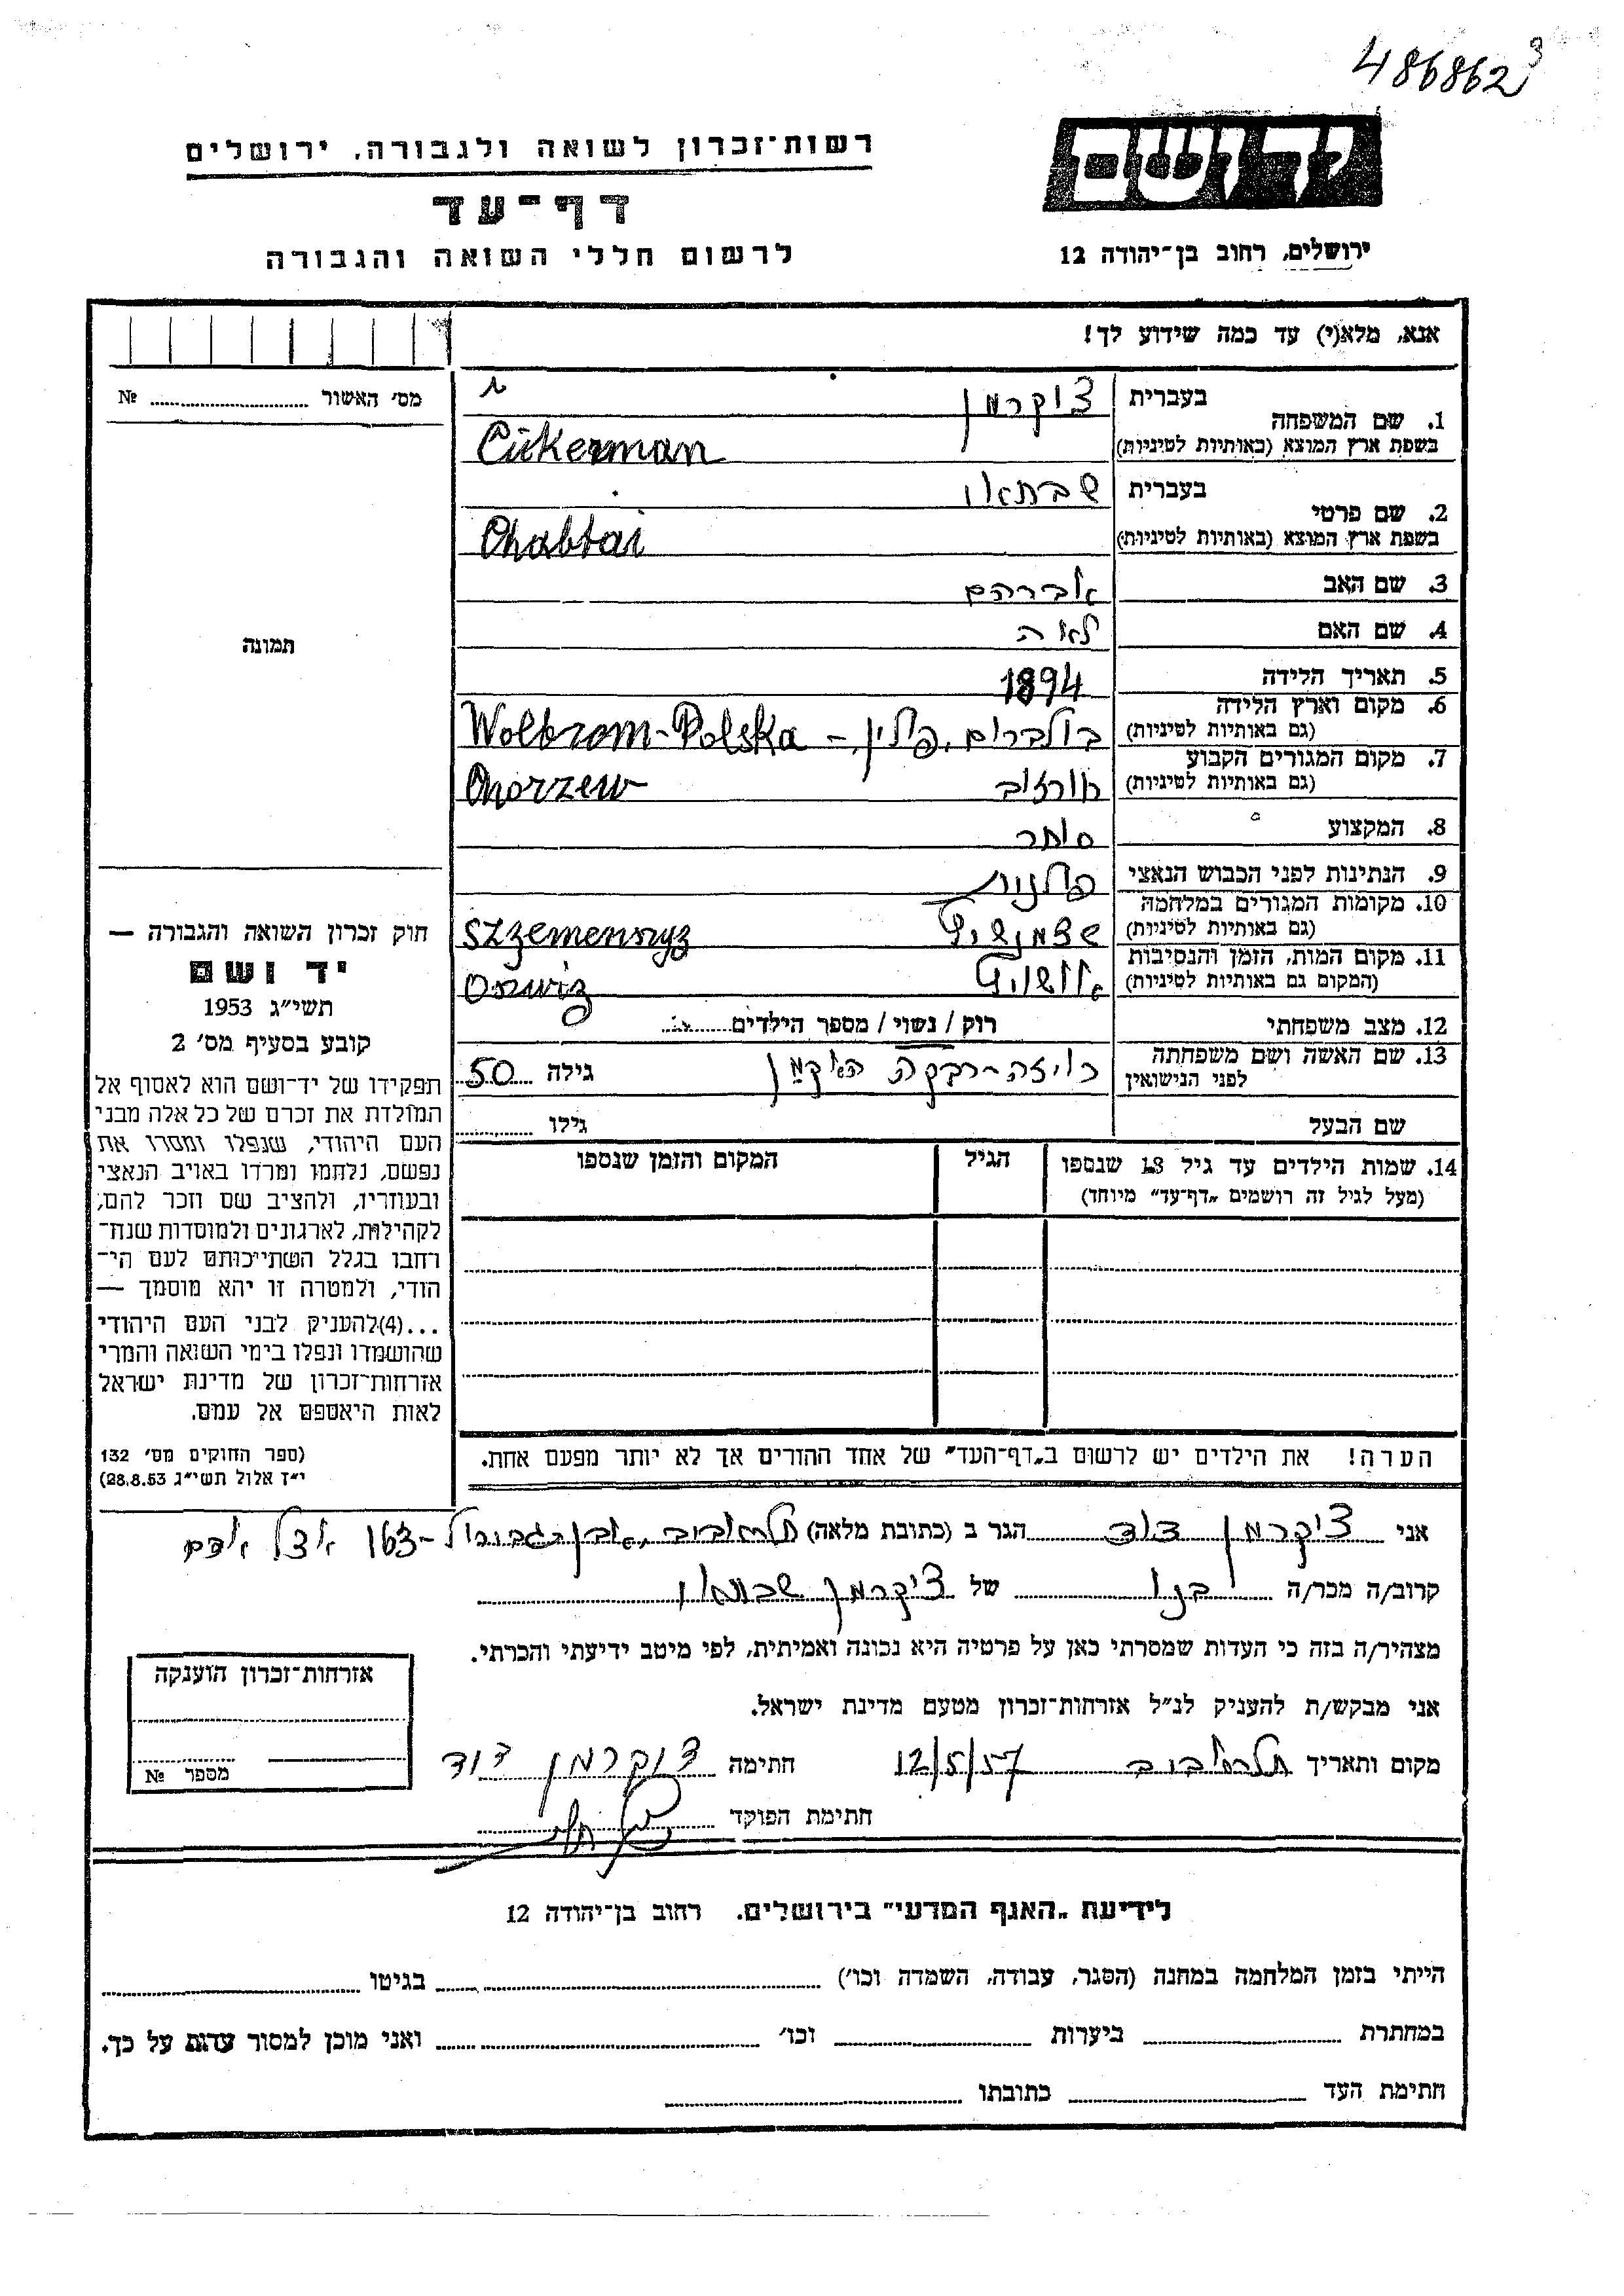 486862 9
יד ושם
רשות־זכרון לשואה ולגבורה, ירושלים
דף־עד
ירושלים, רחוב בן־יהודה 12
לרשום חללי השואה והגבורה
אנא, מלא(י) עד כמה שידוע לך!
מס׳ האשור № 
תמונה
חוק זכרון השואה והגבורה —
יד ושם
תשי״ג 1953
קובע בסעיף מס׳ 2
תפקידו של יד־ושם הוא לאסוף אל
המולדת את זכרם של כל אלה מבני
העם היהודי, שנפלו ומסרו את
נפשם, נלחמו ומרדו באויב הנאצי
ובעוזריו, ולהציב שם וזכר להם,
לקהילות, לארגונים ולמוסדות שנח־
רחבו בגלל השתייכותם לעם הי־
הודי, ולמטרה זו יהא מוסמך —
...(4)להעניק לבני העם היהודי
שהושמדו ונפלו בימי השואה והמרי
אזרחות־זכרון של מדינת ישראל
לאות היאספם אל עמם.
(ספר החוקים מס׳ 132
י״ז אלול תשי״ג 28.8.53)
1. שם המשפחה בעברית צוקרמן
בשפת ארץ המוצא (באותיות לטיניות) Cukerman
2. שם פרטי בעברית שבתאי
בשפת ארץ המוצא (באותיות לטיניות) Chabtai
3. שם האב אברהם
4. שם האם לאה
5. תאריך הלידה 1894
6. מקום וארץ הלידה
(גם באותיות לטיניות) וולברום, פולין, - Wolbrom-Polska
7. מקום המגורים הקבוע
(גם באותיות לטיניות) חורזוב Chorzew
8. המקצוע סוחר
9. הנתינות לפני הכבוש הנאצי פולנית
10. מקומות המגורים במלחמה
(גם באותיות לטיניות) Szzemenszyz
11. מקום המות, הזמן והנסיבות
(המקום גם באותיות לטיניות) אושויץ Oswiz
12. מצב משפחתי רוק / נשוי / מספר הילדים
13. שם האשה ושם משפחתה
לפני הנישואין רויזה-רבקה גילה 50
שם הבעל גילו
14. שמות הילדים עד גיל 18 שנספו הגיל המקום והזמן שנספו
(מעל לגיל זה רושמים „דף־עד״ מיוחד)
הערה! את הילדים יש לרשום ב„דף־העד״ של אחד ההורים אך לא יותר מפעם אחת.
אני צוקרמן דוד הגר ב (כתובת מלאה) תל-אביב, אבן-גבירול אצל
קרוב/ה מכר/ה בנו של צוקרמן שבתאי
מצהיר/ה בזה כי העדות שמסרתי כאן על פרטיה היא נכונה ואמיתית, לפי מיטב ידיעתי והכרתי.
אני מבקש/ת להעניק לנ״ל אזרחות־זכרון מטעם מדינת ישראל.
מקום ותאריך תל-אביב 12/5/57 חתימה צוקרמן דוד
חתימת הפוקד
אזרחות־זכרון הוענקה
מספר №
לידיעת „האגף המדעי״ בירושלים. רחוב בן־יהודה 12
הייתי בזמן המלחמה במחנה (הסגר, עבודה, השמדה וכו׳) בגיטו
במחתרת ביערות וכו׳ ואני מוכן למסור עדות על כך.
חתימת העד כתובתו